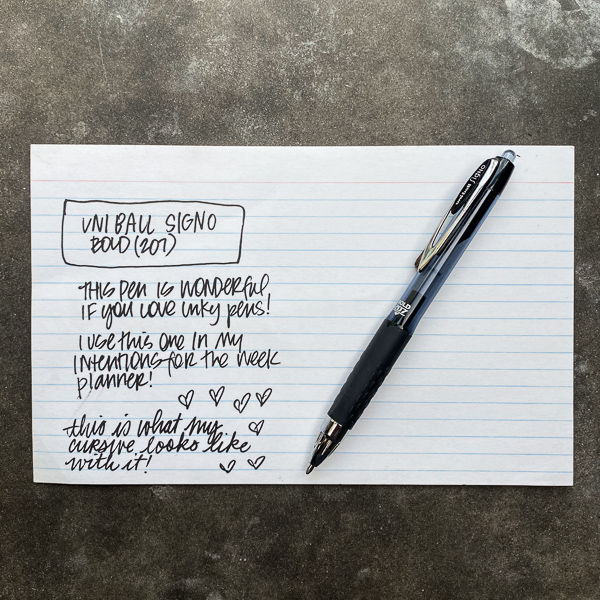 UNI BALL SIGNO
BOLD (207)
THIS PEN IS WONDERFUL
IF YOU LOVE INKY PENS!
I USE THIS ONE IN MY
INTENTIONS FOR THE WEEK
PLANNER!
this is what my
cursive looks like
with it!
uni-ball Signo
BOLD
207